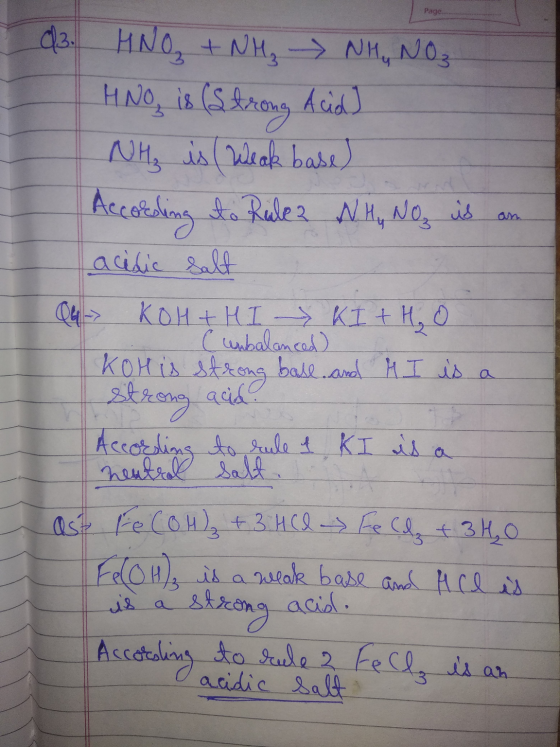 Page
Q3. HNO₃ + NH₃ → NH₄NO₃
HNO₃ is (Strong Acid)
NH₃ is (Weak base)
According to Rule 2 NH₄NO₃ is an
acidic salt
Q4→ KOH + HI → KI + H₂O
(unbalanced)
KOH is strong base. and HI is a
strong acid.
According to rule 1 KI is a
neutral salt.
Q5→ Fe(OH)₃ + 3HCl → FeCl₃ + 3H₂O
Fe(OH)₃ is a weak base and HCl is
is a strong acid.
According to rule 2 FeCl₃ is an
acidic salt